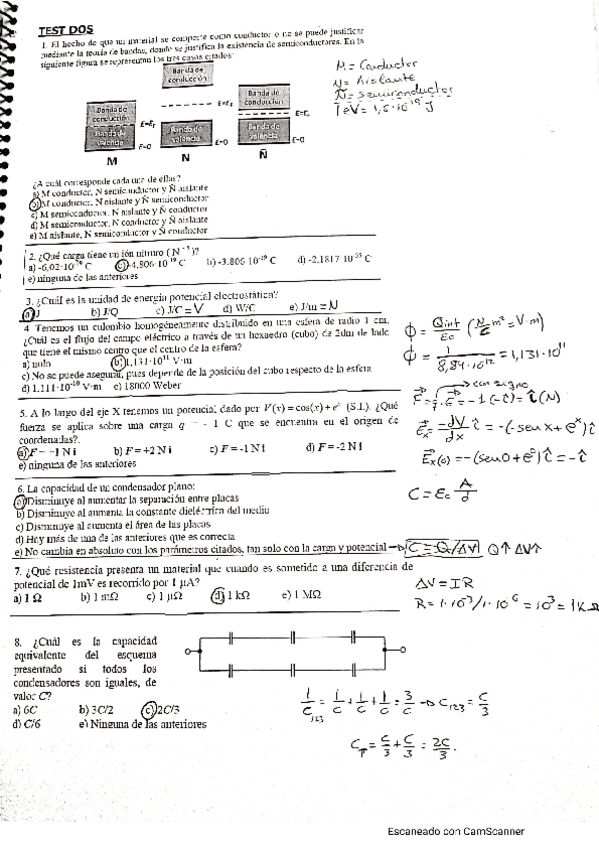 TEST DOS
1. El hecho de que un material se comporte como conductor o no se puede justificar
mediante la teoría de bandas, donde se justifica la existencia de semiconductores. En la
siguiente figura se representan los tres casos citados:
Banda de
conducción
Banda de
conducción
Banda de
conducción
E=Ef
E=Ef
E=Ef
Banda de
valencia
Banda de
valencia
Banda de
valencia
E=0
E=0
E=0
M
N
Ñ
M = Conductor
N = Aislante
Ñ = Semiconductor
1eV = 1,6·10⁻¹⁹ J
¿A cuál corresponde cada una de ellas?
a) M conductor, N semiconductor y Ñ aislante
b) M conductor, N aislante y Ñ semiconductor
c) M semiconductor, N aislante y Ñ conductor
d) M semiconductor, N conductor y Ñ aislante
e) M aislante, N semiconductor y Ñ conductor
2. ¿Qué carga tiene un ión nitruro (N⁻³)?
a) -6,02·10 C c) -4.806·10⁻¹⁹ C b) -3.806·10⁻¹⁹ C d) -2.1817·10 C
e) ninguna de las anteriores
3. ¿Cuál es la unidad de energía potencial electrostática?
a) J b) J/Q c) J/C = V d) W/C e) J/m = N
4. Tenemos un culombio homogéneamente distribuido en una esfera de radio 1 cm.
¿Cuál es el flujo del campo eléctrico a través de un hexaedro (cubo) de 2dm de lado
que tiene el mismo centro que el centro de la esfera?
a) nulo b) 1,131·10¹¹ V·m
c) No se puede asegurar, pues depende de la posición del cubo respecto de la esfera
d) 1.111·10⁻¹⁰ V·m e) 18000 Weber
ϕ = Qint/ε₀ (N/C m² = V·m)
ϕ = 1/8,84·10⁻¹² = 1,131·10¹¹
5. A lo largo del eje X tenemos un potencial dado por V(x) = cos(x) + eˣ (S.I.). ¿Qué
fuerza se aplica sobre una carga q = -1 C que se encuentra en el origen de
coordenadas?.
a) F = -1 N i b) F = +2 N i c) F = -1 N i d) F = -2 N i
e) ninguna de las anteriores
con signo
F = q·E = -1(-î) = î (N)
Eₓ = -dV/dx î = -(-sen x + eˣ) î
Eₓ(0) = -(sen 0 + e⁰) î = -î
6. La capacidad de un condensador plano:
a) Disminuye al aumentar la separación entre placas
b) Disminuye al aumenta la constante dieléctrica del medio
c) Disminuye al aumenta el área de las placas
d) Hay más de una de las anteriores que es correcta
e) No cambia en absoluto con los parámetros citados, tan solo con la carga y potencial → C = Q/ΔV Q↑ ΔV↑
C = ε₀ A/d
7. ¿Qué resistencia presenta un material que cuando es sometido a una diferencia de
potencial de 1mV es recorrido por 1 μA?
a) 1 Ω b) 1 mΩ c) 1 μΩ d) 1 kΩ e) 1 MΩ
ΔV = IR
R = 1·10⁻³/1·10⁻⁶ = 10³ = 1kΩ
8. ¿Cuál es la capacidad
equivalente del esquema
presentado si todos los
condensadores son iguales, de
valor C?
a) 6C b) 3C/2 c) 2C/3
d) C/6 e) Ninguna de las anteriores
1/C₁₂₃ = 1/C + 1/C + 1/C = 3/C → C₁₂₃ = C/3
C_T = C/3 + C/3 = 2C/3.
Escaneado con CamScanner